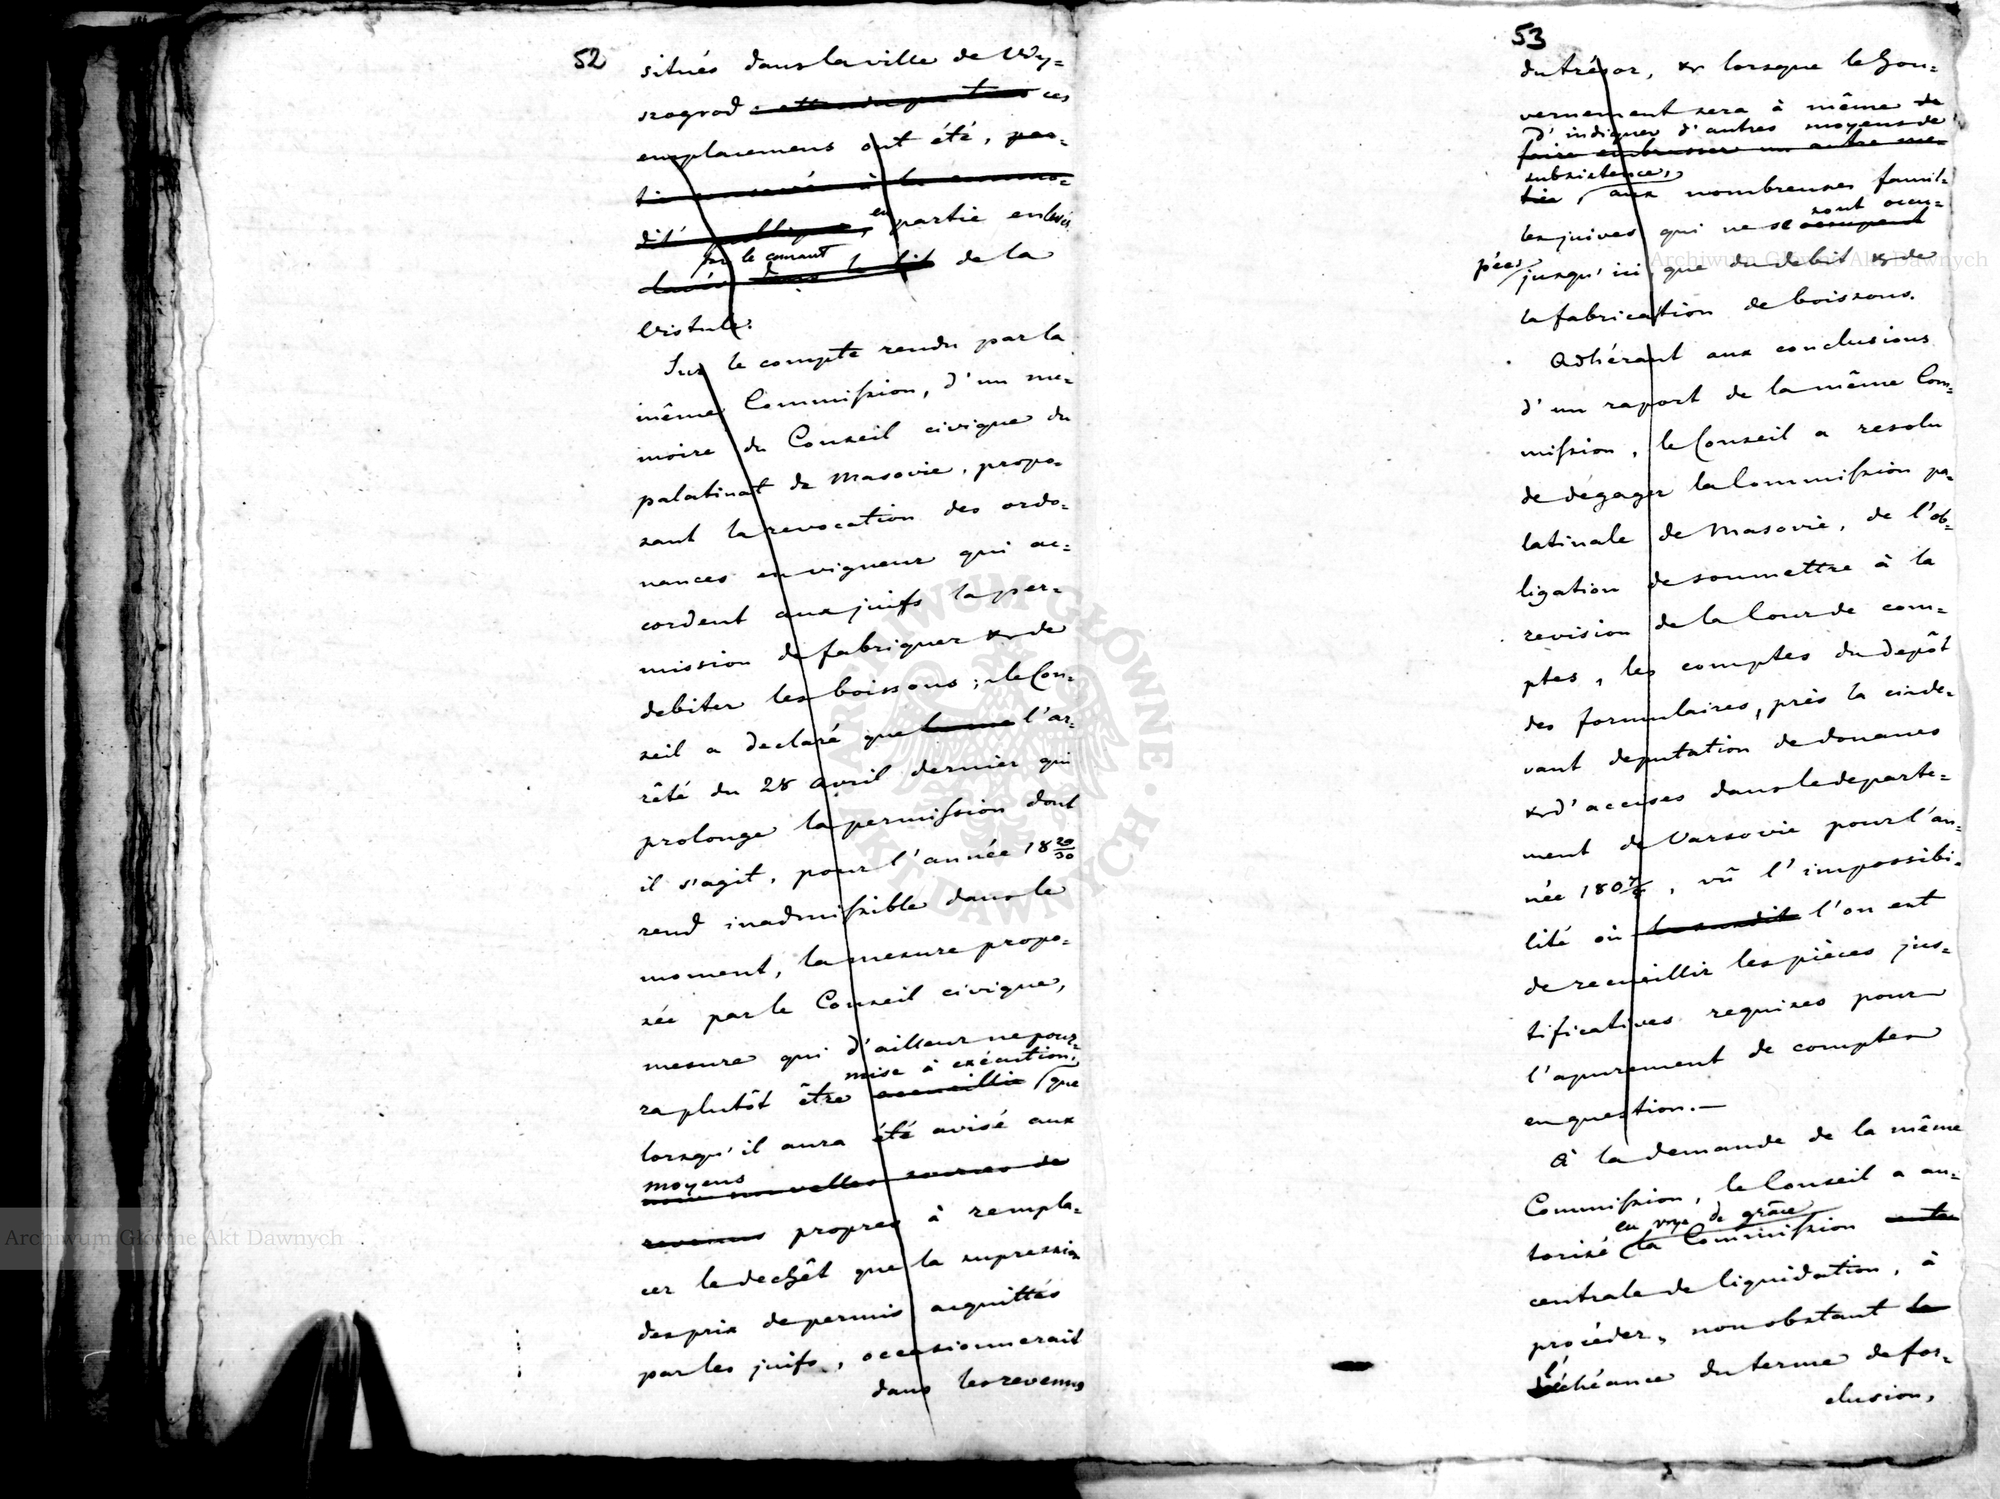 52
situés dans la ville de Wy=
szogrod attendu que tous ces
emplacemens ont été, par=
tie consacrés à la commo=
dité publique, en partie enlevés
par le courant
dans le lit de la
Vistule.
Sur le compte rendu par la
même Commission, d'un me=
moire du Conseil civique du
palatinat de Masovie, propo=
sant la revocation des ordo=
nances en vigueur qui ac=
cordent aux juifs la per=
mission de fabriquer & de
debiter les boissons; le Con=
seil a declaré que l'ar=
rêté du 28 avril dernier qui
prolonge la permission dont
il s'agit, pour l'année 18 29/30
rend inadmissible dans le
moment, la mesure propo=
sée par le Conseil civique,
mesure qui d'ailleur ne pour=
mise à exécution,
ra plutôt être accueillie que
lorsqu'il aura été avisé aux
moyens
nouvelles sources de
revenus propres à rempla=
cer le dechêt que la supression
des prix de permis acquittés
par les juifs, occasionnerait
dans les revenus
53
du trésor, & lorsque le Gou=
vernement sera à même de
d'indiquer d'autres moyens de
faire embrasser un autre me=
subsistence,
tier, aux nombreuses famil=
sont occu=
les juives qui ne se occupent
pées jusqu'ici que du debit & de
la fabrication de boissons.
Adhérant aux conclusions
d'un raport de la même Com=
mission, le Conseil a resolu
de dégager la Commission pa=
latinale de Masovie, de l'ob=
ligation de soumettre à la
revision de la Cour de com=
ptes, les comptes du depôt
des formulaires, près la cinde=
vant deputation de douanes
& d'accises dans le departe=
ment de Varsovie pour l'an=
née 180 7/8, vû l'impossibi=
lité où l'on est
de recueillir les pièces jus=
tificatives requises pour
l'apurement de comptes
en question.—
A la demande de la même
Commission, le Conseil a au=
en voye de grâce
torisé la Commission
centrale de liquidation, à
procéder, nonobstant la
l'échéance du terme de for=
clusion,
Archiwum Główne Akt Dawnych
Archiwum Główne Akt Dawnych
ARCHIWUM GŁÓWNE AKT DAWNYCH